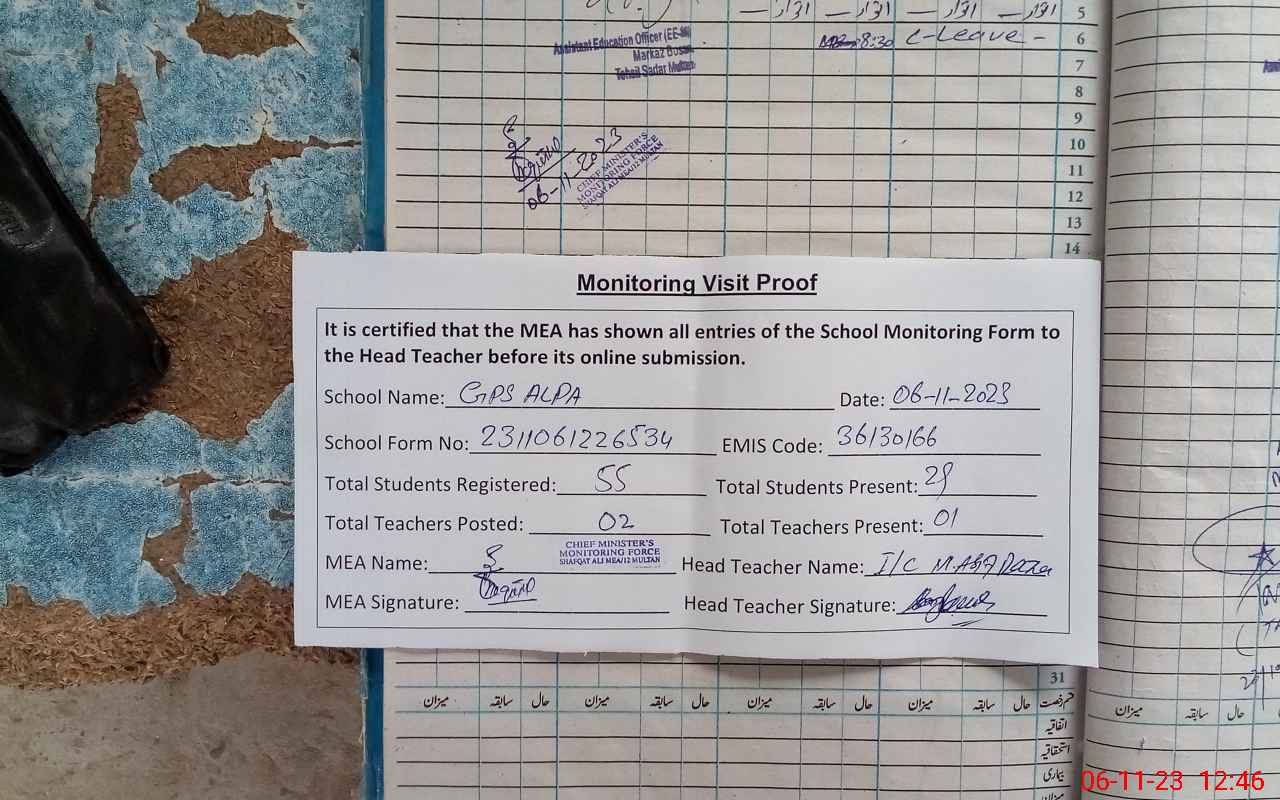 اتوار — اتوار — اتوار — اتوار — 5
8:30 C-Leave - 6
Assistant Education Officer (EE-M)
Markaz Bosan
Tehsil Sadar Multan
7
8
9
10
11
12
13
14
06-11-2023
CHIEF MINISTER'S
MONITORING FORCE
SHAFQAT ALI MEA/12 MULTAN
Monitoring Visit Proof
It is certified that the MEA has shown all entries of the School Monitoring Form to
the Head Teacher before its online submission.
School Name: GPS ALPA Date: 06-11-2023
School Form No: 2311061226534 EMIS Code: 36130166
Total Students Registered: 55 Total Students Present: 29
Total Teachers Posted: 02 Total Teachers Present: 01
CHIEF MINISTER'S
MONITORING FORCE
SHAFQAT ALI MEA/12 MULTAN
MEA Name: Head Teacher Name: I/C M.
MEA Signature: Head Teacher Signature:
31
میزان سابقہ حال میزان سابقہ حال میزان سابقہ حال میزان سابقہ حال قسم رخصت
میزان سابقہ حال
اتفاقیہ
استحقاقیہ
بیماری
میزان
06-11-23 12:46